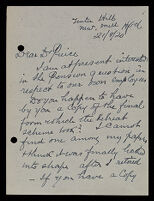 Hill
21/9/20
Dear Dr Price
I am at present interested
in the Pension question in
respect to our own employees
Do you happen to have
by you a copy of the final
form which the
scheme took? I cannot
find one among my papers
which I was finally
into shape after I retired
- If you have a copy